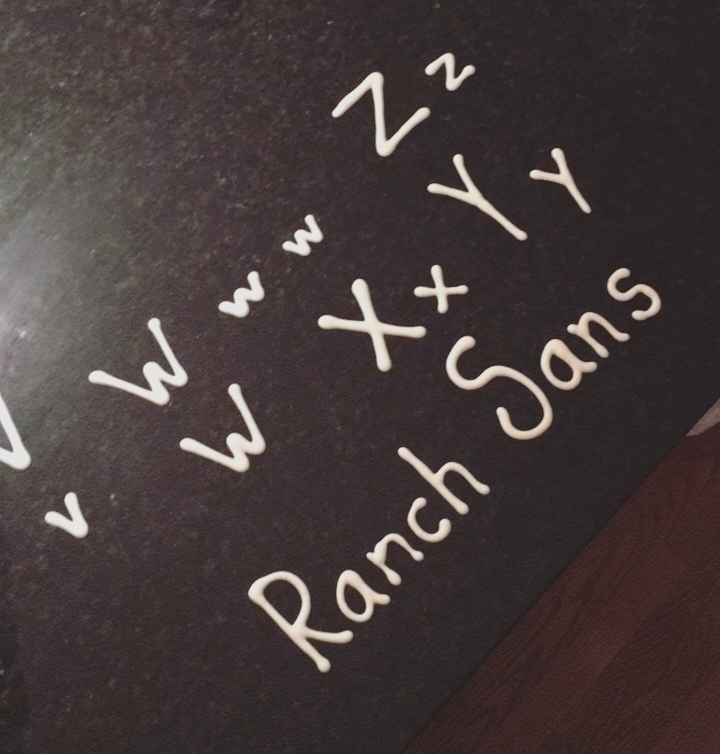 V v
W W w w
X x
Y y
Z z
Ranch Sans